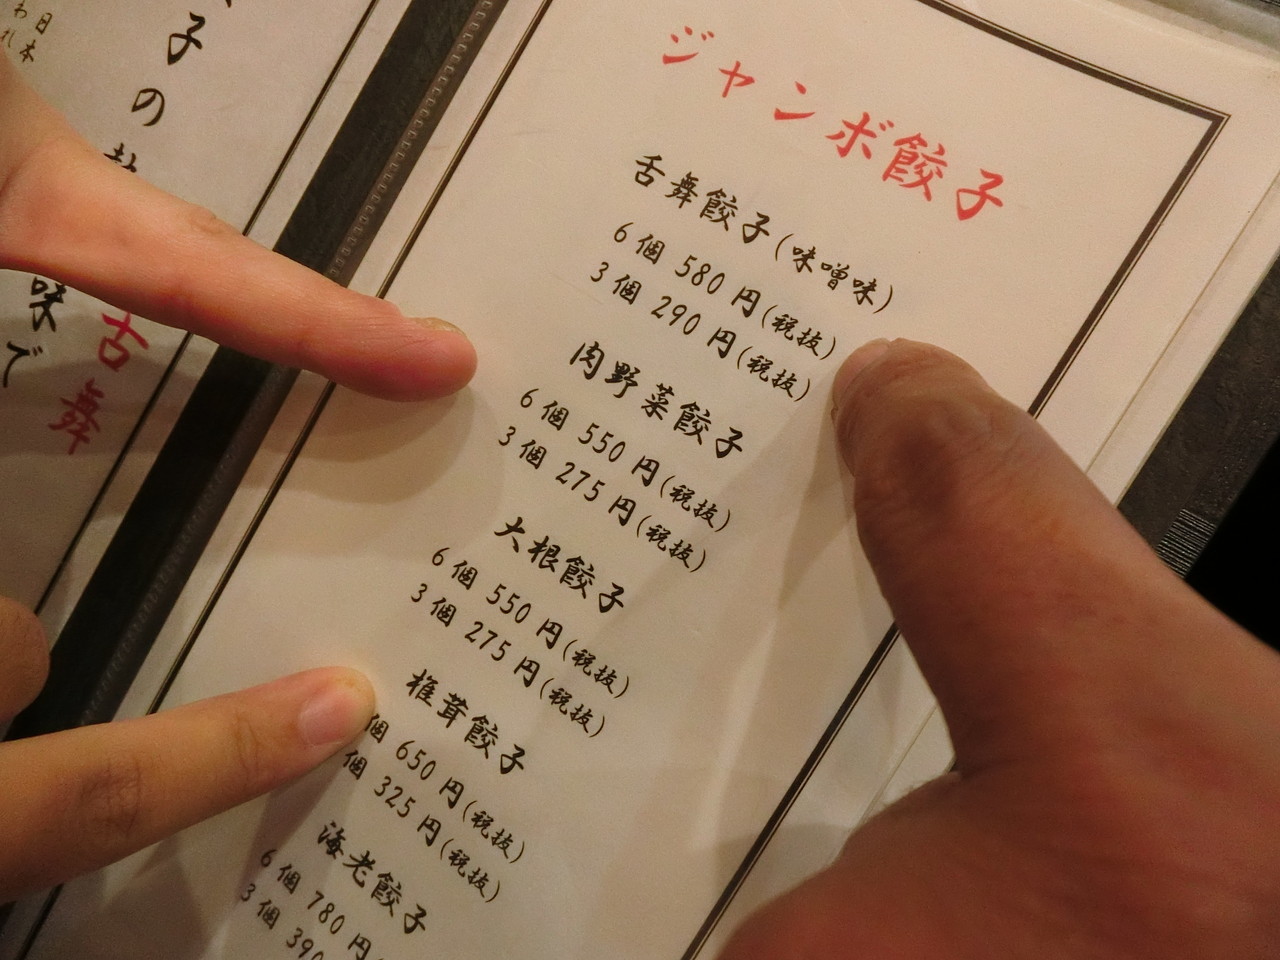 ジャンボ餃子
舌舞餃子(味噌味)
6個 580円(税抜)
3個 290円(税抜)
肉野菜餃子
6個 550円(税抜)
3個 275円(税抜)
大根餃子
6個 550円(税抜)
3個 275円(税抜)
椎茸餃子
個 650円(税抜)
個 325円(税抜)
海老餃子
6個 780円
3個 390
日本
われ
子の
味で
舌舞